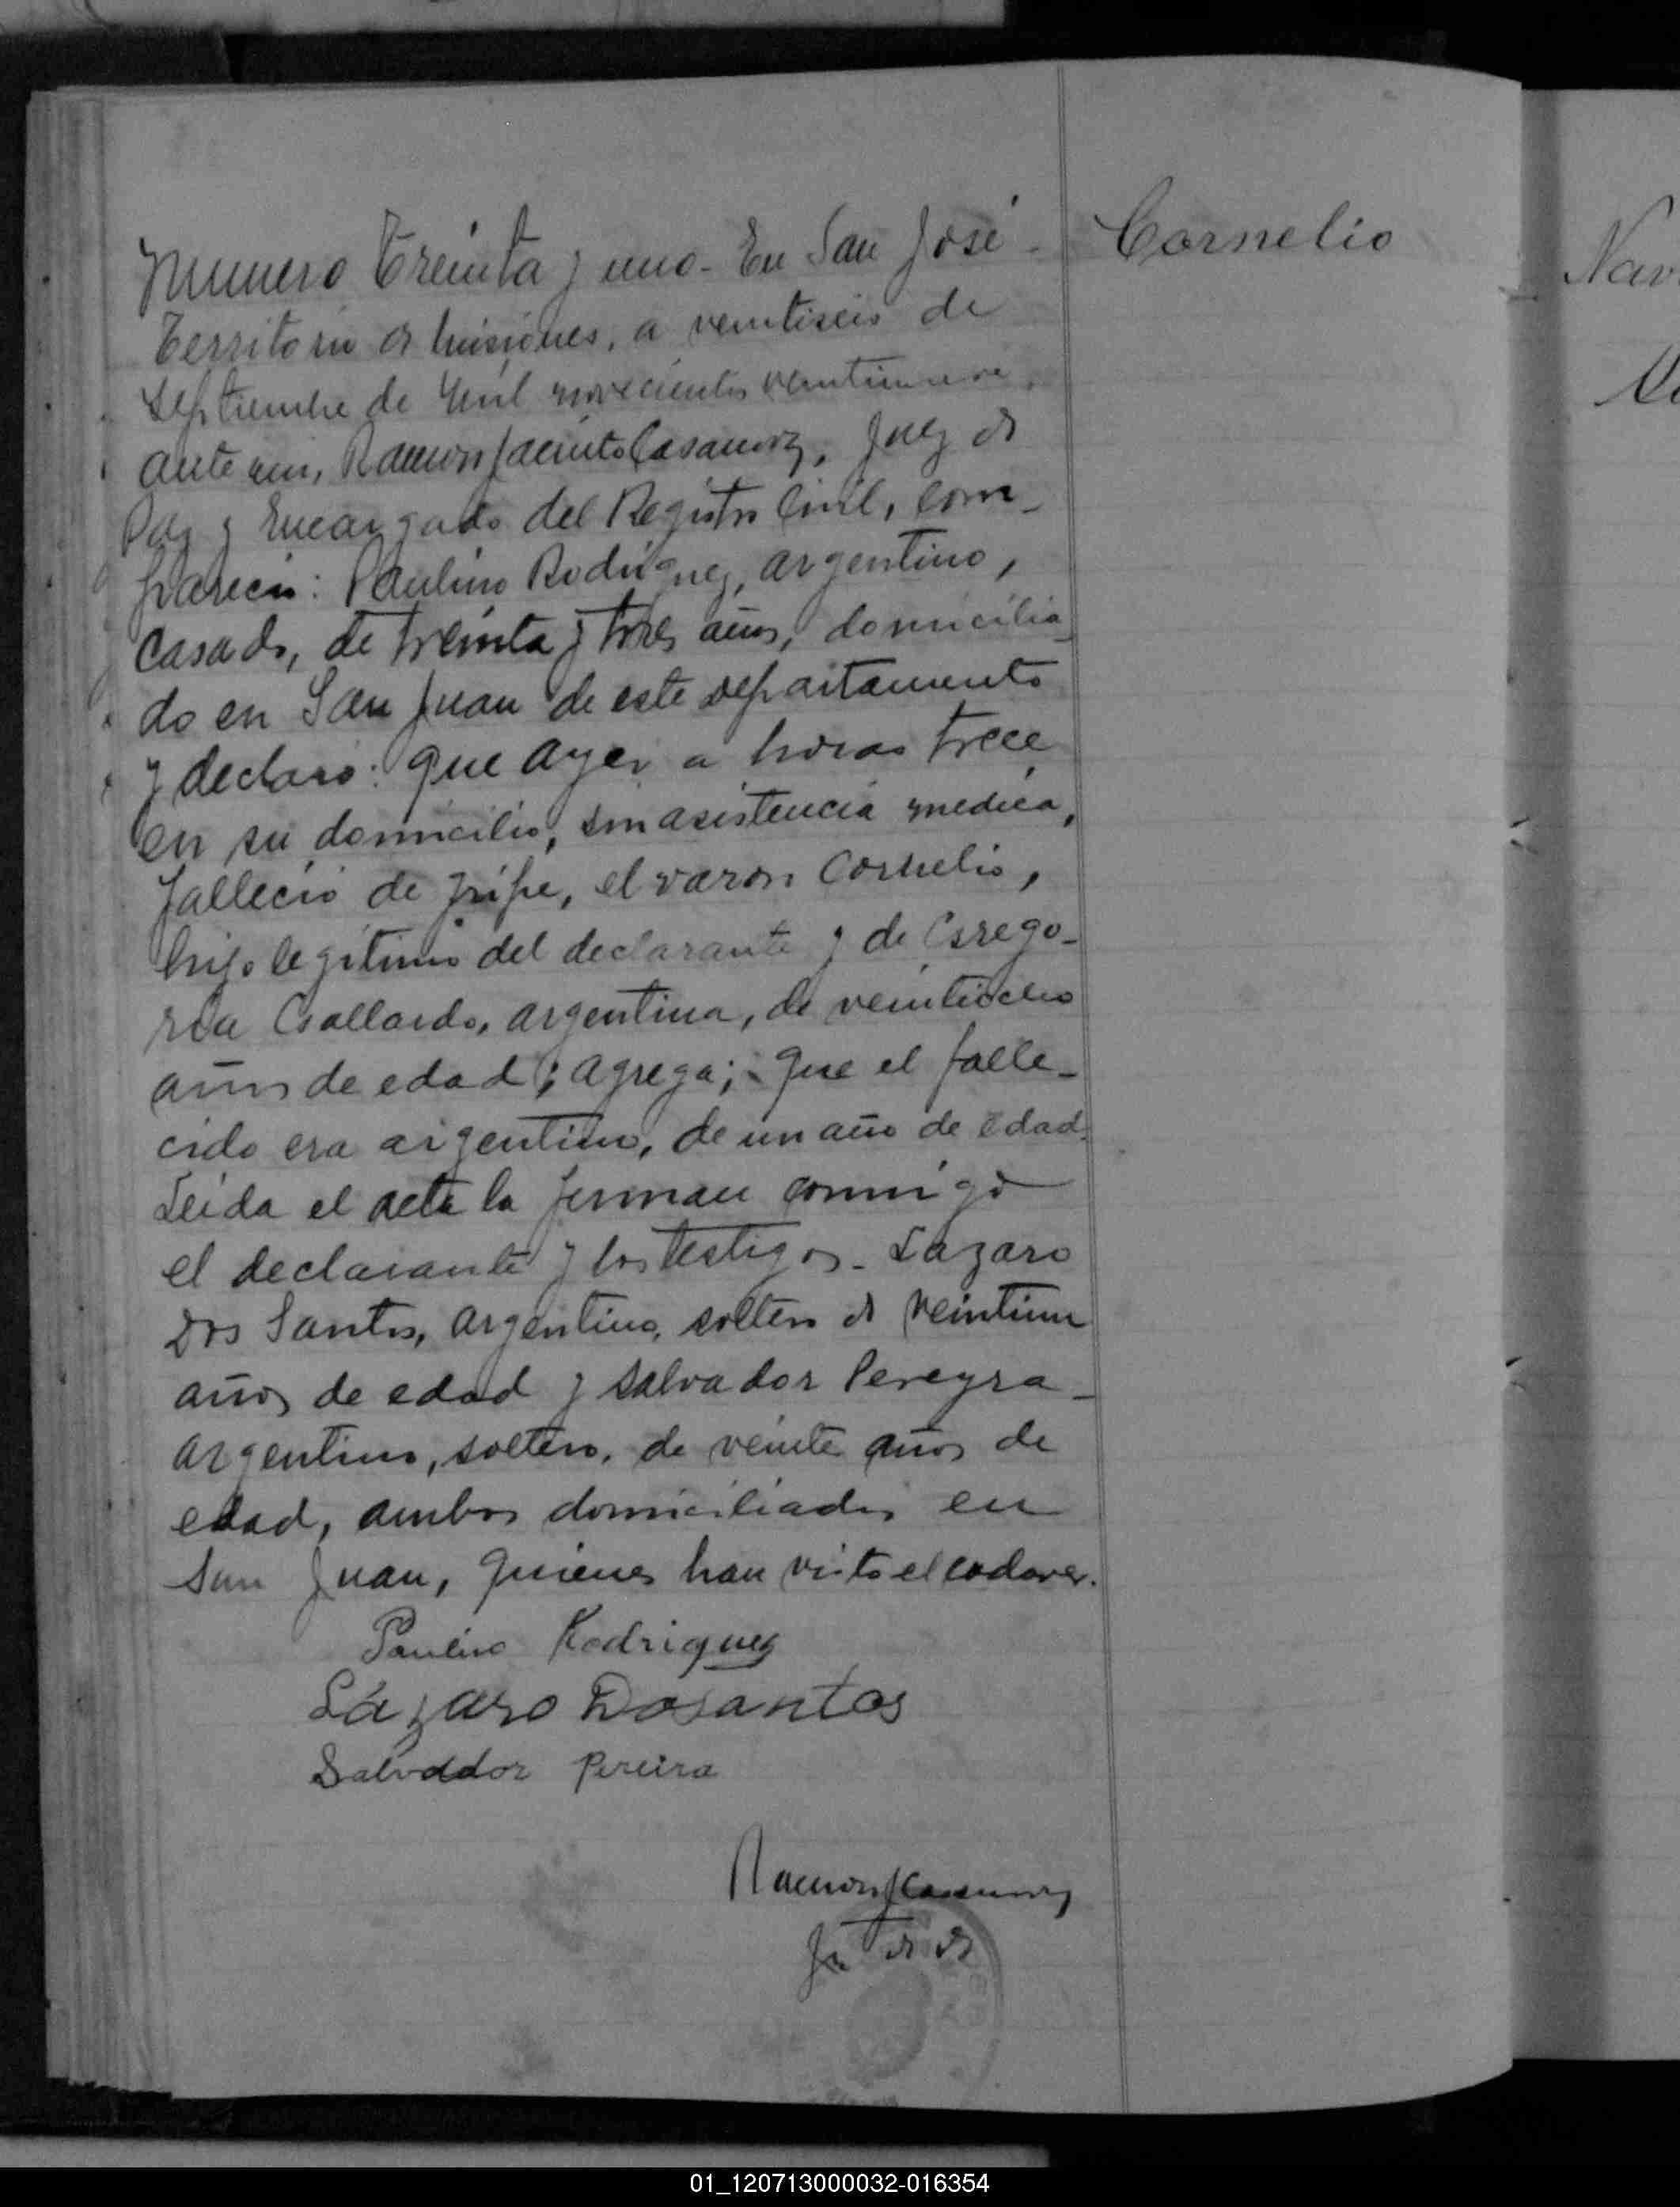 Numero Treinta y uno - En San José - Cornelio
Territorio de Misiones, a veintiseis de
Septiembre de Mil novecientos veintinueve,
ante mi, Ramon Jacinto Casanova, Juez de
Paz y Encargado del Registro Civil, com-
pareció: Paulino Rodriguez, argentino,
casado, de treinta y tres años, domicilia-
do en San Juan de este departamento
y declaró: Que ayer a horas trece
en su domicilio, sin asistencia medica,
falleció de gripe, el varon Cornelio,
hijo legitimo del declarante y de Grego-
ria Gallardo, argentina, de veintiocho
años de edad; agrega; Que el falle-
cido era argentino, de un año de edad.
Leida el acta la firman conmigo
el declarante y los testigos - Lazaro
Dos Santos, argentino, soltero de veintiun
años de edad y Salvador Pereyra -
argentino, soltero, de veinte años de
edad, ambos domiciliados en
San Juan, quienes han visto el cadaver.
Paulino Rodriguez
Lázaro Dosantos
Salvador Pereira
Ramon J Casanova
01_120713000032-016354